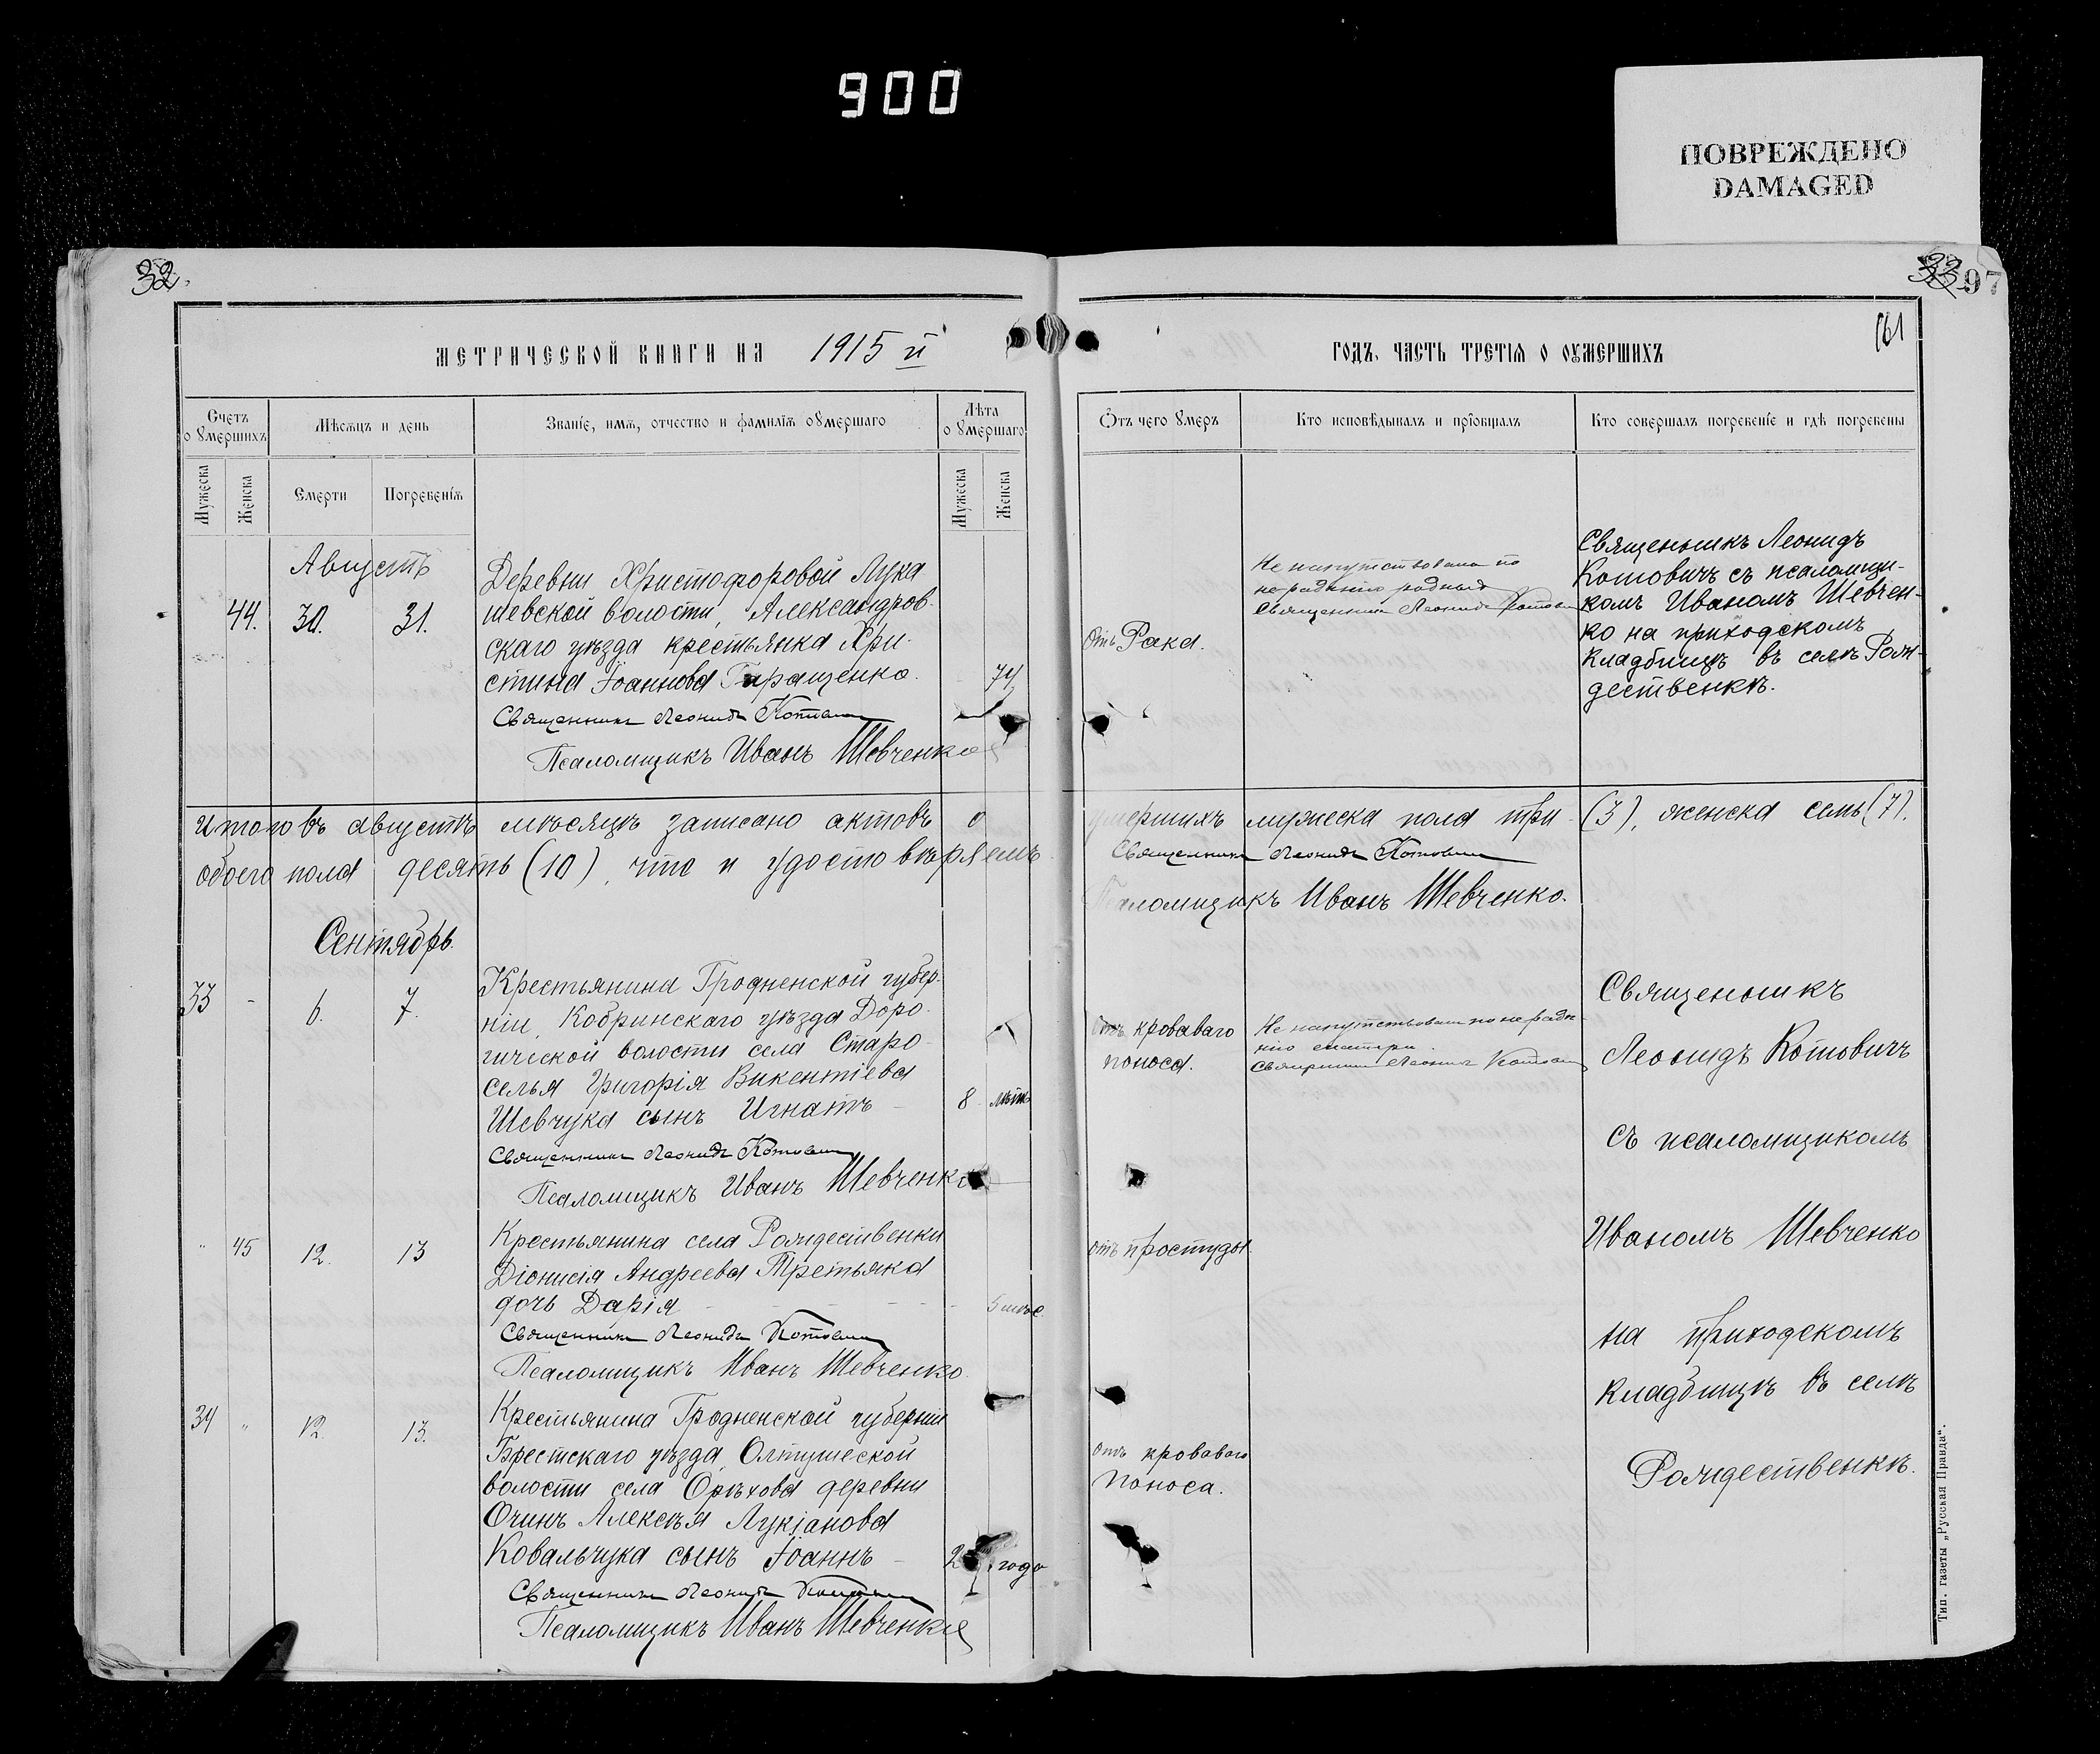 900
ПОВРЕЖДЕНО
DAMAGED
32.
97
161
МЕТРИЧЕСКОЙ КНИГИ НА 1915 й
ГОДЪ, ЧАСТЬ ТРЕТІЯ О ОУМЕРШИХЪ
Счетъ о умершихъ
Мѣсяцъ и день
Званіе, имя, отчество и фамилія оумершаго
Лѣта оумершаго
Отъ чего умеръ
Кто исповѣдывалъ и пріобщалъ
Кто совершалъ погребеніе и гдѣ погребены
Мужеска
Женска
Смерти
Погребенія
Мужеска
Женска
Августъ
44. 30. 31.
Деревни Христофоровой Лука
шевской волости, Александров-
скаго уѣзда крестьянка Хри-
стина Іоаннова Геращенко.
74
Священникъ Леонидъ Котовичъ
Псаломщикъ Иванъ Шевченко
Отъ Рака.
Не напутствована по
нерадѣнію родныхъ
Священникъ Леонидъ Котович
Священникъ Леонидъ
Котовичъ съ псаломщи-
комъ Иваномъ Шевчен-
ко на приходскомъ
кладбищѣ въ селѣ Рож-
дественкѣ.
Итого въ августѣ мѣсяцѣ записано актовъ о умершихъ мужеска пола три (3), женска семь (7),
обоего пола десять (10), что и удостовѣряемъ
Священникъ Леонидъ Котовичъ
Псаломщикъ Иванъ Шевченко.
Сентябрь.
33 - 6. 7.
Крестьянина Гродненской губер-
ніи, Кобринскаго уѣзда Доро-
гической волости села Старо-
селья Григорія Викентіева
Шевчука сынъ Игнатъ -
8 лѣтъ
Священникъ Леонидъ Котовичъ
Псаломщикъ Иванъ Шевченко
Отъ кроваваго
поноса.
Не напутствованъ по нерадѣ-
нію матери.
Священникъ Леонидъ Котович
" 45 12. 13
Крестьянина села Рождественки
Діонисія Андреева Третьяка
дочь Дарія
5 мѣс
Священникъ Леонидъ Котовичъ
Псаломщикъ Иванъ Шевченко.
отъ простуды
34 " 12. 13.
Крестьянина Гродненской губерніи
Брестскаго уѣзда, Олтушской
волости села Орѣхова деревни
Очинъ Алексѣя Лукіанова
Ковальчука сынъ Іоаннъ -
2 года
Священникъ Леонидъ Котовичъ
Псаломщикъ Иванъ Шевченко
отъ кроваваго
поноса.
Священникъ
Леонидъ Котовичъ
съ псаломщикомъ
Иваномъ Шевченко
на приходскомъ
кладбищѣ въ селѣ
Рождественкѣ.
Тип. газеты „Русская Правда“.